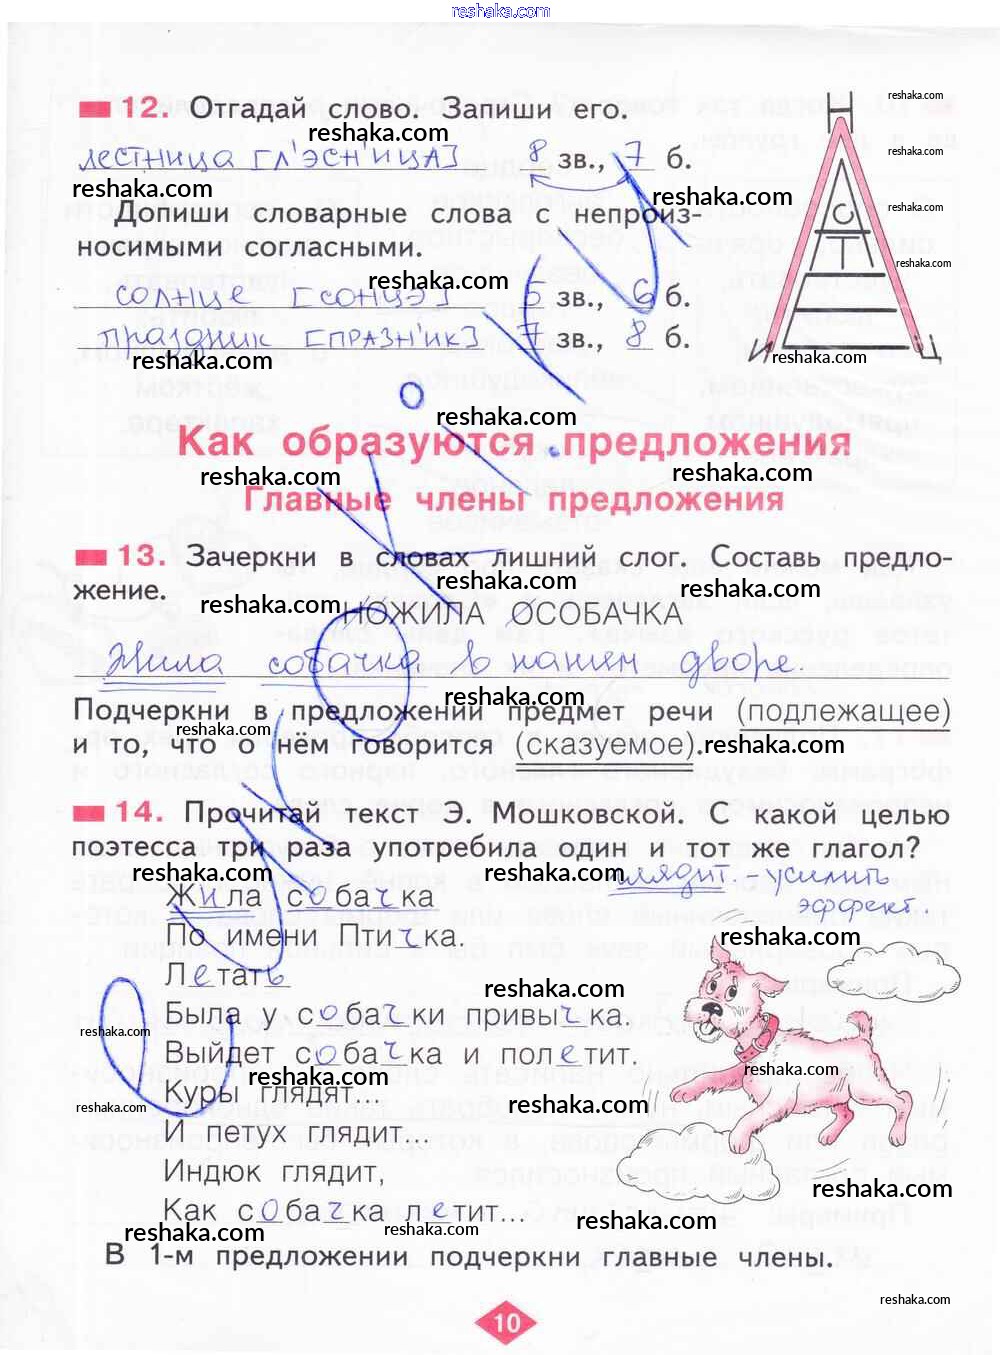 reshaka.com
12. Отгадай слово. Запиши его.
reshaka.com
лестница [Л'ЭСН'ИЦА] 8 зв., 7 б.
reshaka.com reshaka.com
Допиши словарные слова с непроиз-
носимыми согласными.
reshaka.com
солнце [СОНЦЭ] 5 зв., 6 б.
праздник [ПРАЗН'ИК] 7 зв., 8 б.
reshaka.com
reshaka.com
reshaka.com
reshaka.com
reshaka.com
С
Т
И Ц
reshaka.com
reshaka.com
Как образуются предложения
reshaka.com reshaka.com
Главные члены предложения
13. Зачеркни в словах лишний слог. Составь предло-
reshaka.com
жение.
reshaka.com reshaka.com
НОЖИЛА ОСОБАЧКА
Жила собачка в нашем дворе.
reshaka.com
Подчеркни в предложении предмет речи (подлежащее)
reshaka.com
и то, что о нём говорится (сказуемое).
reshaka.com
14. Прочитай текст Э. Мошковской. С какой целью
reshaka.com
поэтесса три раза употребила один и тот же глагол?
reshaka.com reshaka.com
глядит. – усилить
эффект.
Жила собачка
reshaka.com
По имени Птичка.
reshaka.com
Летать
reshaka.com
Была у собачки привычка.
reshaka.com
reshaka.com
Выйдет собачка и полетит.
reshaka.com reshaka.com
Куры глядят...
reshaka.com reshaka.com
И петух глядит...
reshaka.com
Индюк глядит,
reshaka.com
Как собачка летит...
reshaka.com reshaka.com reshaka.com
В 1-м предложении подчеркни главные члены.
reshaka.com
10